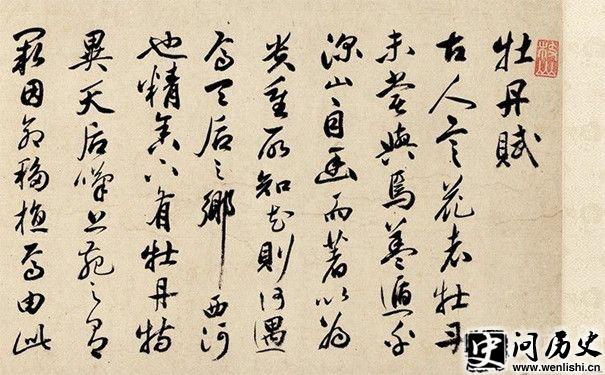 牡丹賦
古人言花者牡丹
未嘗與焉蓋遁乎
深山自幽而著以為
貴重所知花則何遇
焉天后之鄉西河
也精舍下有牡丹特
異天后嘆上苑之有
闕因命移植焉由此
问历史
www.wenlishi.cn